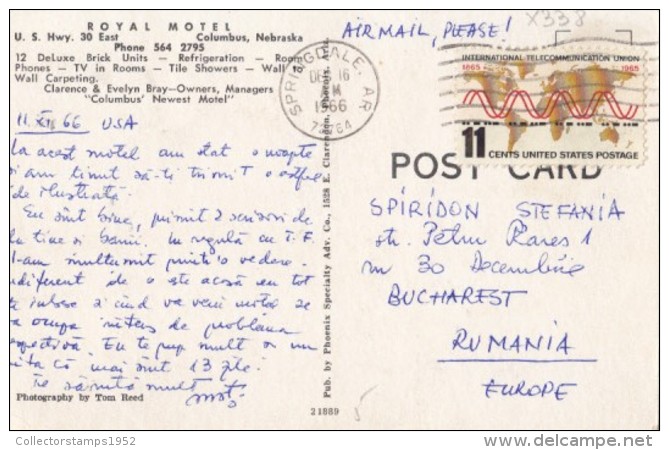 ROYAL MOTEL
U. S. Hwy. 30 East Columbus, Nebraska
Phone 564 2795
12 DeLuxe Brick Units — Refrigeration — Room
Phones — TV in Rooms — Tile Showers — Wall
Wall Carpeting.
Clarence & Evelyn Bray—Owners, Managers
"Columbus' Newest Motel"
AIR MAIL, PLEASE!
X338
SPRINGDALE, AR
DEC 16
AM
1966
72764
INTERNATIONAL TELECOMMUNICATION UNION
1865 1965
11 CENTS UNITED STATES POSTAGE
POST CARD
11 XII 66 USA
La acest motel am stat o noapte
și am ținut să-ți trimit o astfel
de ilustrată.
Eu sînt bine, primit 2 scrisori de
la tine și banii. In regulă cu T.F.
l-am mulțumit printr-o vedere.
indiferent de o este acasă eu tot
te iubesc și cînd va veni
ocupa de problema
respectivă. Eu te pup mult
că mai sînt 13 zile.
Te sărută mult
SPIRIDON STEFANIA
str. Petru Rares 1
30 Decembrie
BUCHAREST
RUMANIA
EUROPE
Pub. by Phoenix Specialty Adv. Co., 1528 E. Clarendon, Phoenix, Ariz.
Photography by Tom Reed
21889
5
Collectorstamps1952
delcampe.net